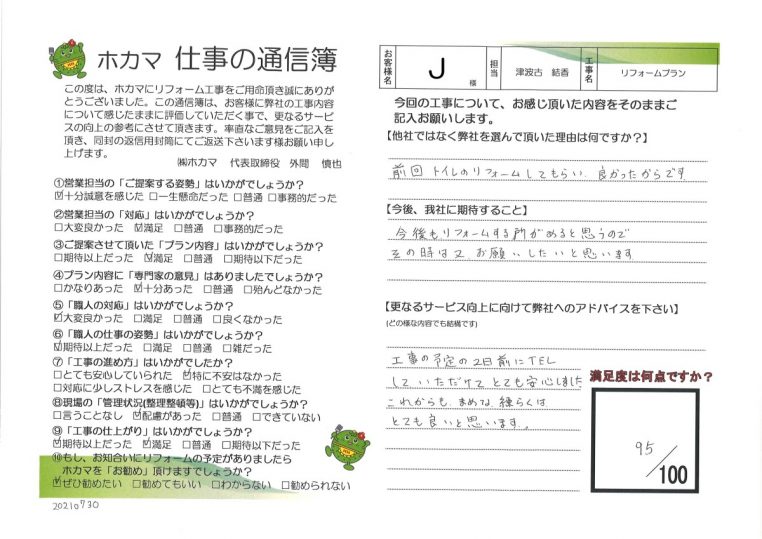 ホカマ 仕事の通信簿
この度は、ホカマにリフォーム工事をご用命頂き誠にあり
がとうございました。この通信簿は、お客様に弊社の工事内容
について感じたままに評価していただく事で、更なるサービ
スの向上の参考にさせて頂きます。率直なご意見をご記入を
頂き、同封の返信用封筒にてご返送下さいます様お願い申し
上げます。
㈱ホカマ 代表取締役 外間 慎也
①営業担当の「ご提案する姿勢」はいかがでしょうか?
☑十分誠意を感じた □一生懸命だった □普通 □事務的だった
②営業担当の「対応」はいかがでしょうか?
□大変良かった ☑満足 □普通 □事務的だった
③ご提案させて頂いた「プラン内容」はいかがでしょうか?
□期待以上だった ☑満足 □普通 □期待以下だった
④プラン内容に「専門家の意見」はありましたでしょうか?
□かなりあった ☑十分あった □普通 □殆んどなかった
⑤「職人の対応」はいかがでしょうか?
☑大変良かった □満足 □普通 □良くなかった
⑥「職人の仕事の姿勢」はいかがでしょうか?
☑期待以上だった □満足 □普通 □雑だった
⑦「工事の進め方」はいかがでしたか?
□とても安心していられた ☑特に不安はなかった
□対応に少しストレスを感じた □とても不満を感じた
⑧現場の「管理状況(整理整頓等)」はいかがでしょうか?
□言うことなし ☑配慮があった □普通 □できていない
⑨「工事の仕上がり」はいかがでしょうか?
☑期待以上だった ☑満足 □普通 □期待以下だった
⑩もし、お知合いにリフォームの予定がありましたら
ホカマを「お勧め」頂けますでしょうか?
☑ぜひ勧めたい □勧めてもいい □わからない □勧められない
20210730
お客様名 J 様 担当 津波古 結香 工事名 リフォームプラン
今回の工事について、お感じ頂いた内容をそのままご
記入お願いします。
【他社ではなく弊社を選んで頂いた理由は何ですか?】
前回トイレのリフォームしてもらい、良かったからです
【今後、我社に期待すること】
今後もリフォームする所があると思うので
その時は又お願いしたいと思います
【更なるサービス向上に向けて弊社へのアドバイスを下さい】
(どの様な内容でも結構です)
工事の予定の2日前にTEL
していただけてとても安心しました
これからも、まめな連らくは
とても良いと思います。
満足度は何点ですか?
95
/100